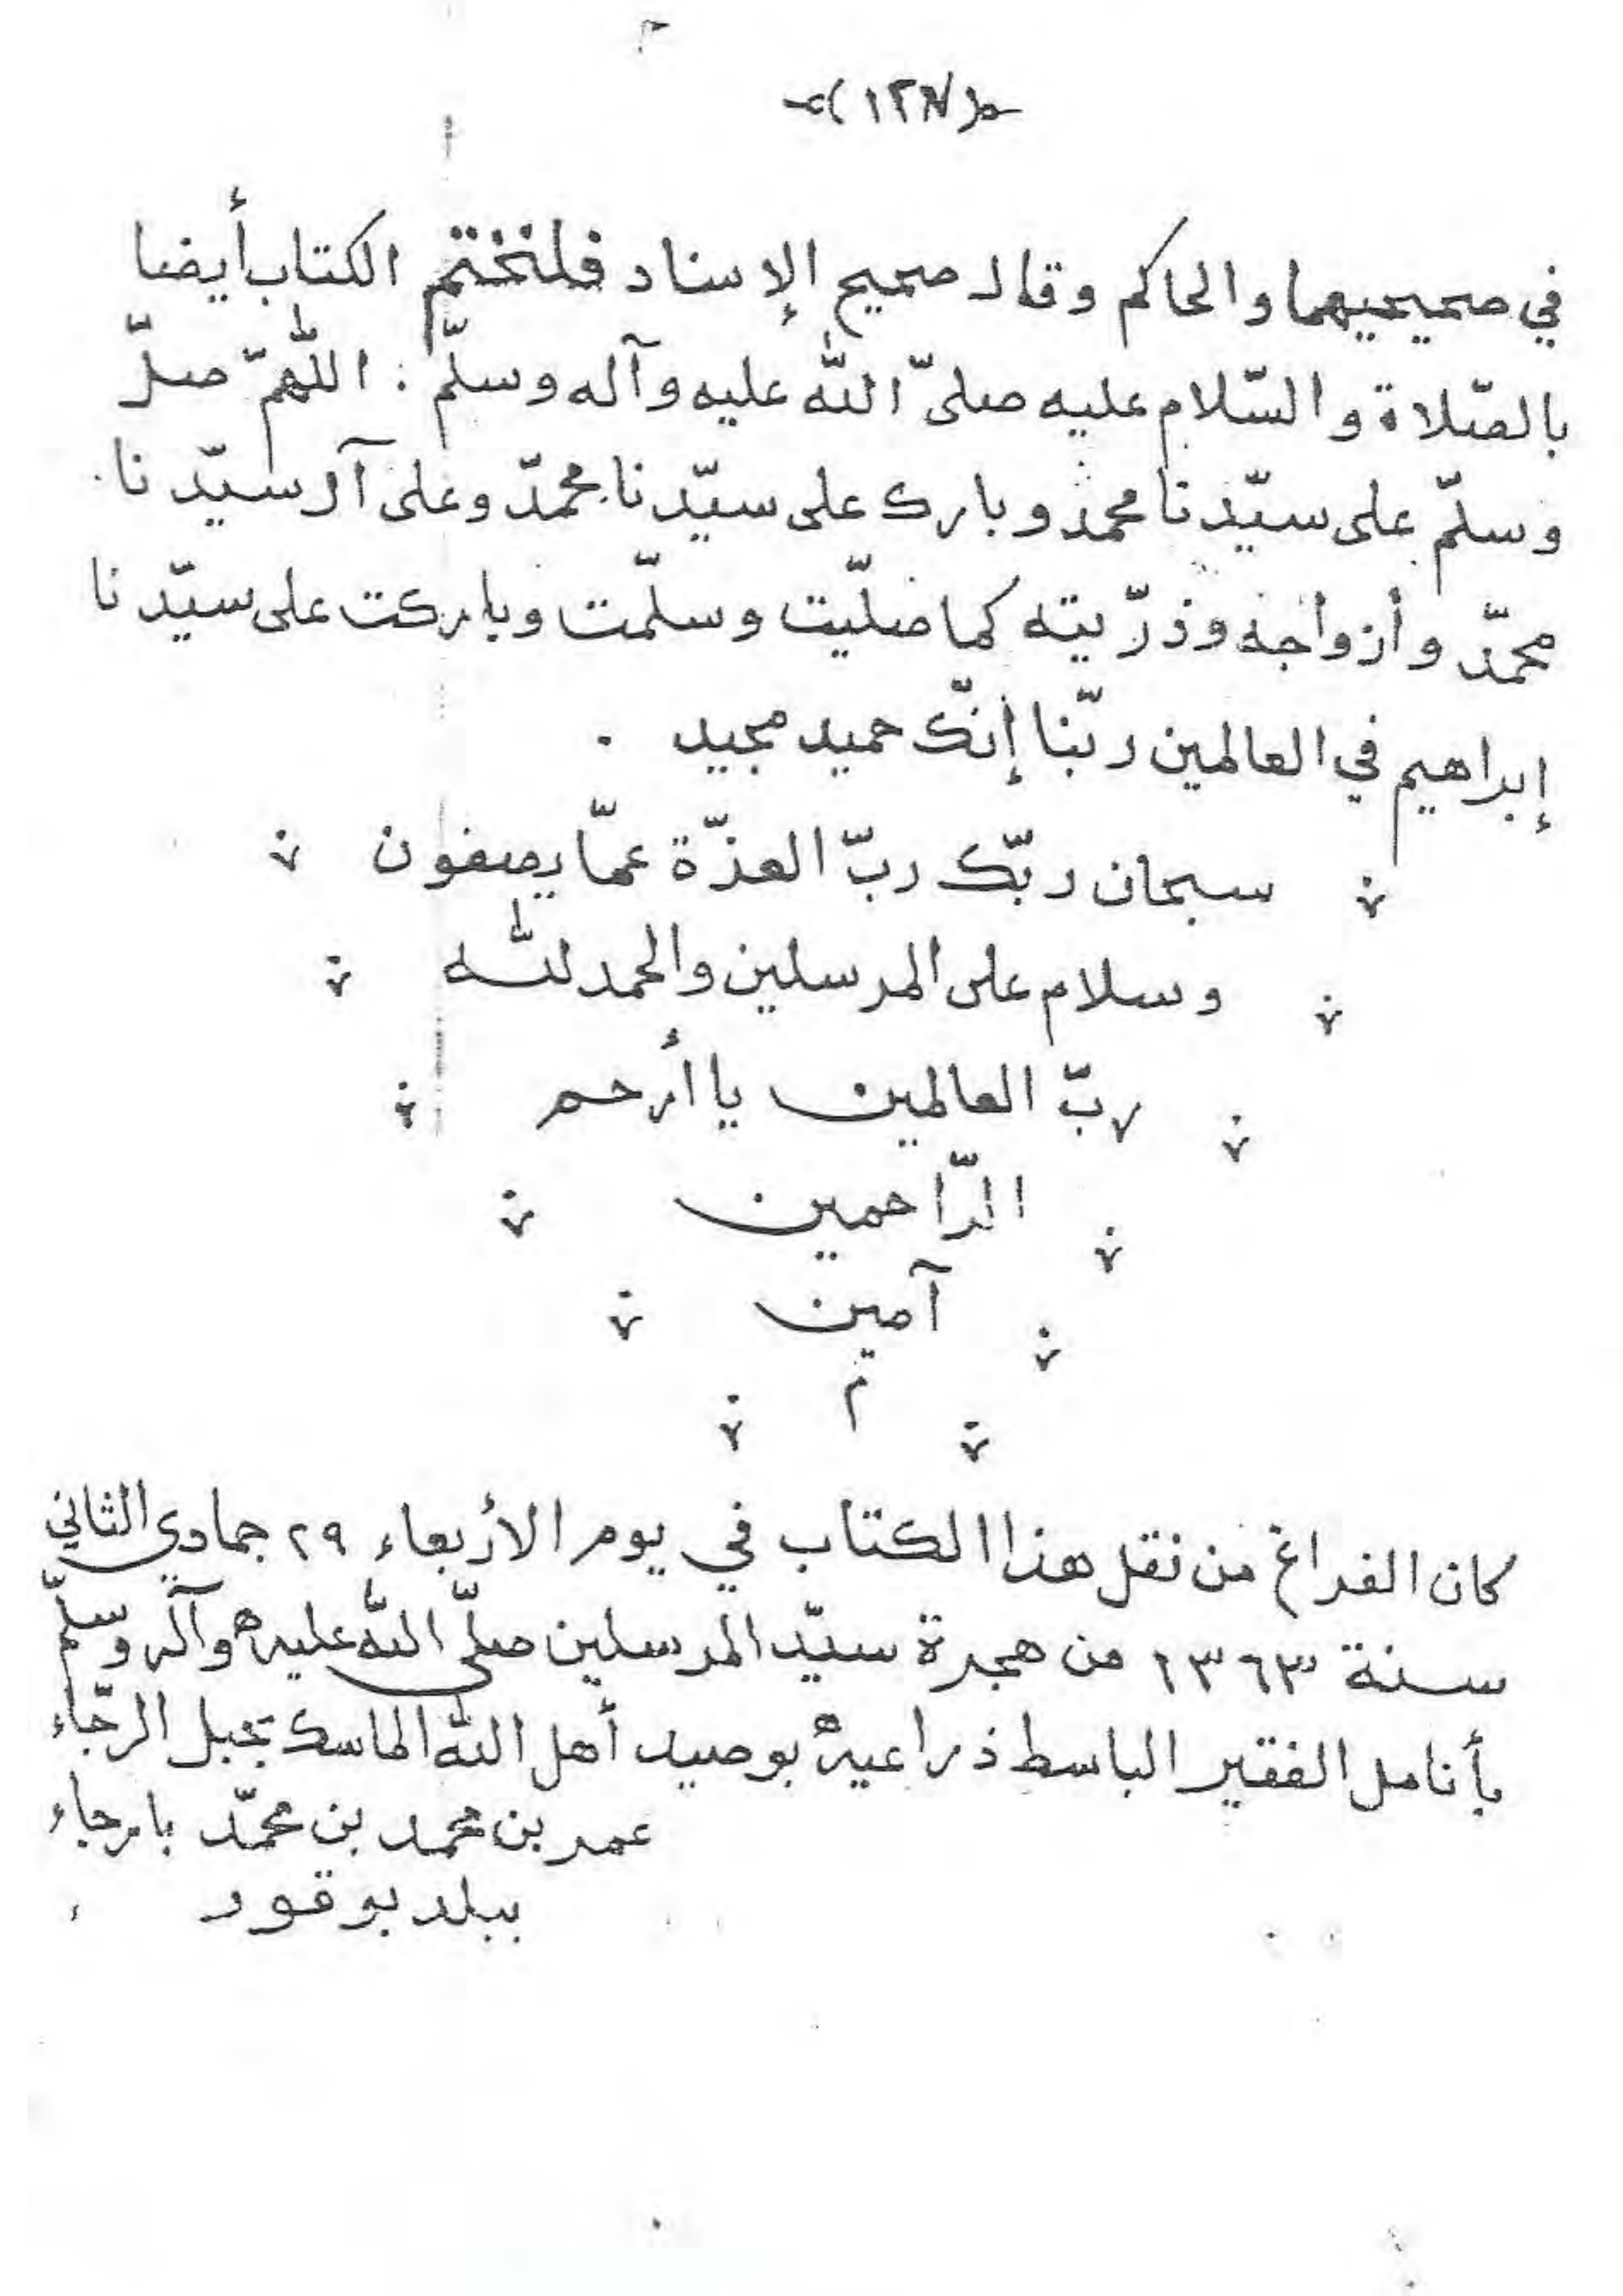 في صحيحيهما والحاكم وقال صحيح الإسناد فلنختتم الكتاب أيضا
بالصّلاة والسّلام عليه صلىّ الله عليه وآله وسلّم : اللّهمّ صلّ
وسلّم على سيّدنا محمد وبارك على سيّدنا محمّد وعلى آل سيّدنا
محمّد وأزواجه وذرّيته كما صليّت وسلّمت وباركت على سيّدنا
إبراهيم في العالمين ربّنا إنّك حميد مجيد .
سبحان ربّك ربّ العزّة عمّا يصفون
وسلام على المرسلين والحمد لله
ربّ العالمين يا أرحم
الرّاحمين
آمين
م
كان الفراغ من نقل هذا الكتاب في يوم الأربعاء ٢٩ جمادي الثاني
سنة ١٣٦٣ من هجرة سيّد المرسلين صلّى الله عليه وآله وسلّم
بأنامل الفقير الباسط ذراعيه بوصيد أهل الله الماسك بحبل الرّجاء
عمر بن محمد بن محمّد بارجاء
ببلد بوقور